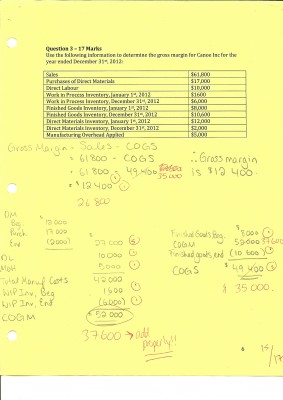 Question 3 – 17 Marks
Use the following information to determine the gross margin for Canoe Inc for the
year ended December 31st, 2012:
Sales $61,800
Purchases of Direct Materials $17,000
Direct Labour $10,000
Work in Process Inventory, January 1st, 2012 $1600
Work in Process Inventory, December 31st, 2012 $6,000
Finished Goods Inventory, January 1st, 2012 $8,000
Finished Goods Inventory, December 31st, 2012 $10,600
Direct Materials Inventory, January 1st, 2012 $12,000
Direct Materials Inventory, December 31st, 2012 $2,000
Manufacturing Overhead Applied $5,000
Gross Margin = Sales - COGS
= 61 800 - COGS ∴ Gross margin
= 61 800 - 49 400 35000 is $12 400.
= $12 400
26 800
DM
Beg
Purch 17 000
End (2000) 27 000
DL 10 000
MOH 5000
Total Manuf Costs 42 000
WIP Inv, Beg 1600
WIP Inv, End (6000)
COGM $52 000
Finished Goods, Beg 8000
COGM 52000 37600
Finished goods, end (10 600)
COGS $49 400
$ 35 000.
37600 → add
properly!!
6
15/17